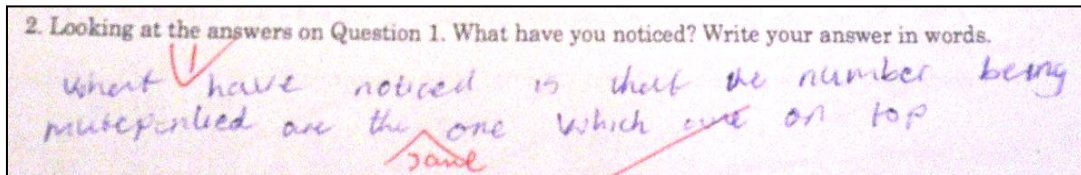 2. Looking at the answers on Question 1. What have you noticed? Write your answer in words.
I
What have noticed is that the number being
mutepenlied are the one which are on top
same